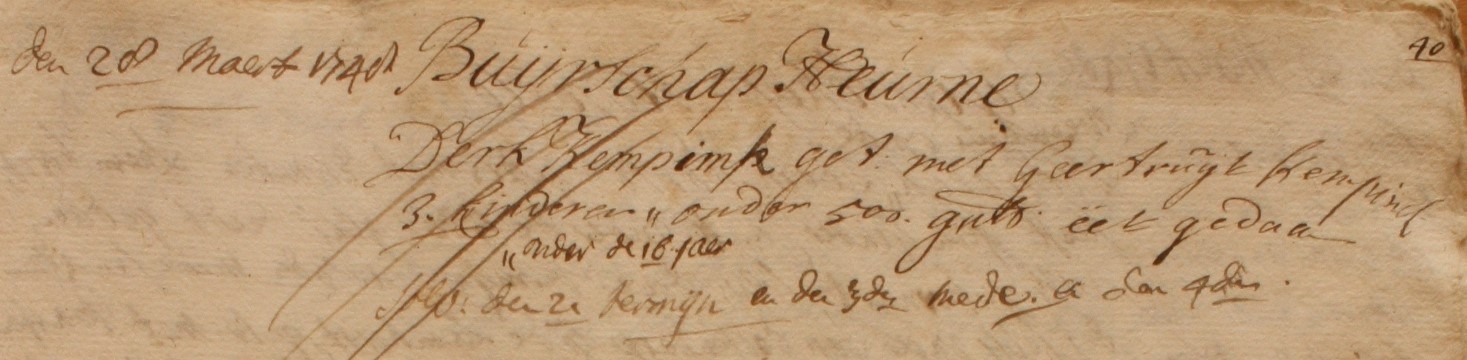 40
den 28 Maert 1748 Buijrschap Heurne
Derk Kempink get. met Geertruijt Kempinck
3. kinderen " onder 500. guld. eet gedaan
" onder de 16 jaer
den 2n termijn en den 3den mede. en den 4den.